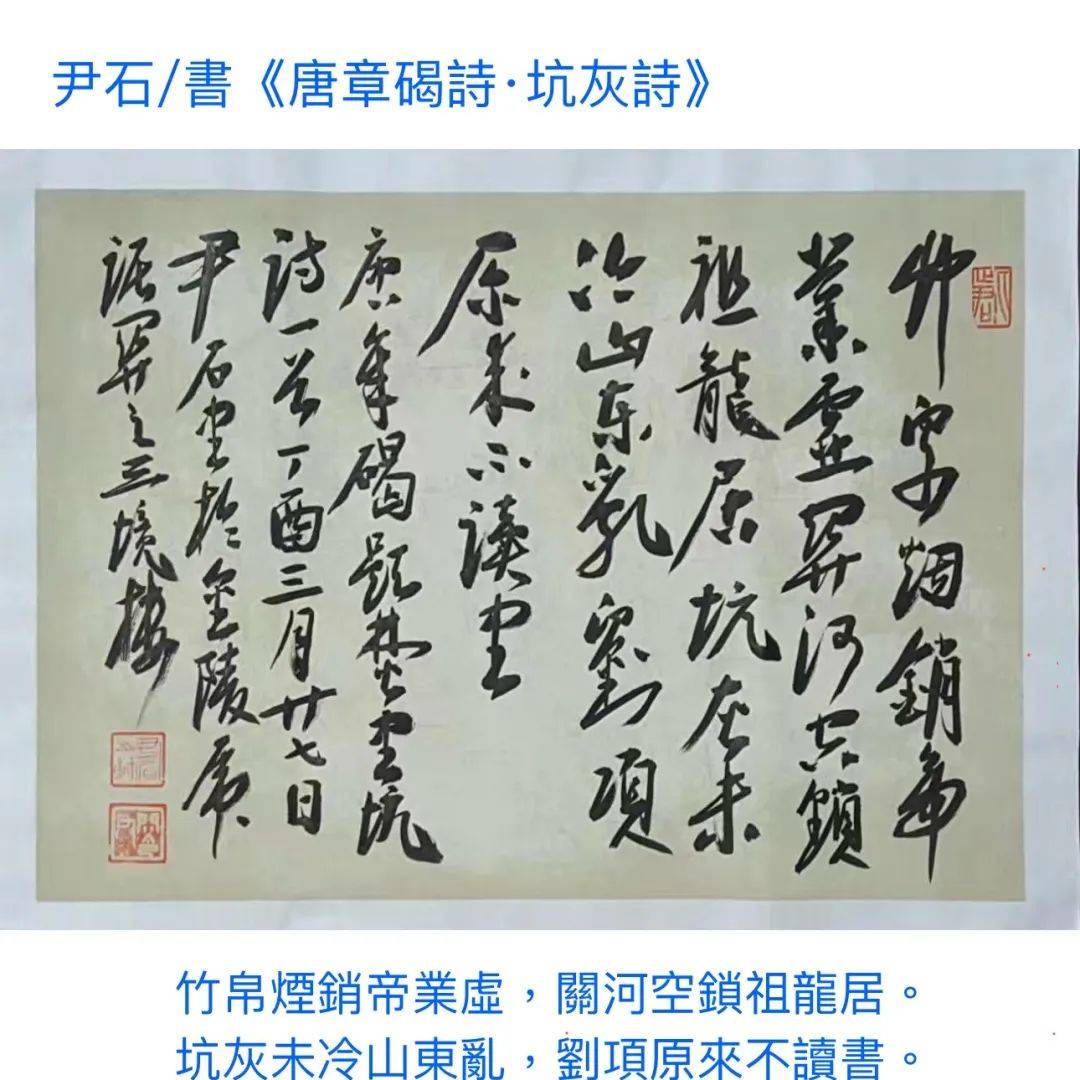 尹石/書《唐章碣詩·坑灰詩》
竹帛烟銷帝
業虛關河空鎖
祖龍居坑灰未
冷山東亂劉項
原來不讀書
唐章碣題焚書坑
詩一首丁酉三月廿七日
尹石書於金陵虎
踞關之三境樓
竹帛煙銷帝業虛，關河空鎖祖龍居。
坑灰未冷山東亂，劉項原來不讀書。